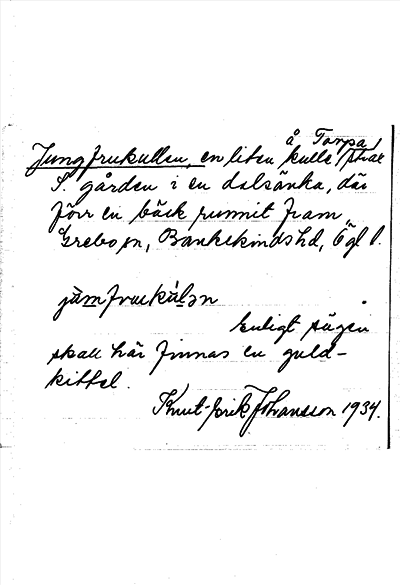 å Torpa
Jungfrukullen, en liten kulle, strax
S. gården i en dalsänka, där
förr en bäck runnit fram,
Grebo sn, Bankekinds hd, Ögl l.
Enligt sägen
skall här finnas en guld-
kittel.
Knut-Erik Johansson 1934.